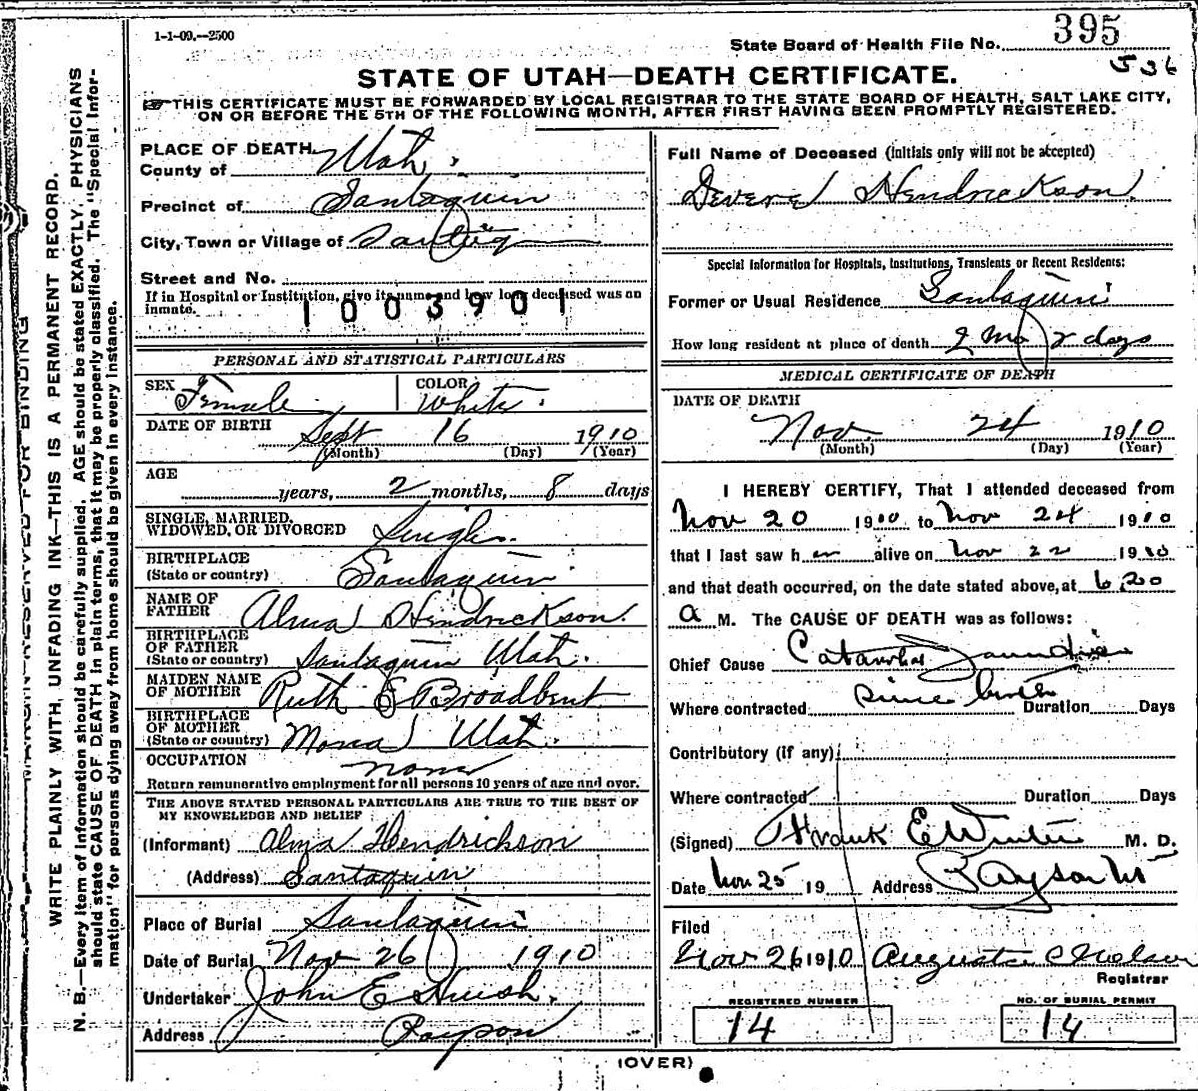 1-1-09.--2500
State Board of Health File No. 395
536
STATE OF UTAH—DEATH CERTIFICATE.
THIS CERTIFICATE MUST BE FORWARDED BY LOCAL REGISTRAR TO THE STATE BOARD OF HEALTH, SALT LAKE CITY,
ON OR BEFORE THE 5TH OF THE FOLLOWING MONTH, AFTER FIRST HAVING BEEN PROMPTLY REGISTERED.
PLACE OF DEATH
County of Utah.
Precinct of Santaquin
City, Town or Village of
Street and No.
If in Hospital or Institution, give its name and how long deceased was an
Inmate.
1003901
PERSONAL AND STATISTICAL PARTICULARS
SEX Female COLOR White.
DATE OF BIRTH Sept 16 1910
(Month) (Day) (Year)
AGE
years, 2 months, 8 days
SINGLE, MARRIED,
WIDOWED, OR DIVORCED Single.
BIRTHPLACE
(State or country) Santaquin
NAME OF
FATHER Alma Hendrickson.
BIRTHPLACE
OF FATHER
(State or country) Santaquin Utah.
MAIDEN NAME
OF MOTHER Ruth E Broadbent
BIRTHPLACE
OF MOTHER
(State or country) Mona Utah.
OCCUPATION none
Return remunerative employment for all persons 10 years of age and over.
THE ABOVE STATED PERSONAL PARTICULARS ARE TRUE TO THE BEST OF
MY KNOWLEDGE AND BELIEF
(Informant) Alma Hendrickson
(Address) Santaquin
Place of Burial Santaquin
Date of Burial Nov 26 1910
Undertaker John E Huish.
Address Payson
Full Name of Deceased (initials only will not be accepted)
Hendrickson.
Special Information for Hospitals, Institutions, Transients or Recent Residents:
Former or Usual Residence Santaquin
How long resident at place of death 2 Mo days
MEDICAL CERTIFICATE OF DEATH
DATE OF DEATH
Nov. 24 1910
(Month) (Day) (Year)
I HEREBY CERTIFY, That I attended deceased from
Nov 20 1910 to Nov 24 1910
that I last saw h er alive on Nov 22 1910
and that death occurred, on the date stated above, at 6,20
a M. The CAUSE OF DEATH was as follows:
Chief Cause Catarrhal Jaundice
since birth
Where contracted Duration Days
Contributory (if any)
Where contracted Duration Days
(Signed) Frank E Winter M. D.
Date Nov 25 19 Address Payson Ut
Filed
Nov 26 1910 Augusta C Nelson
Registrar
REGISTERED NUMBER
14
NO. OF BURIAL PERMIT
14
(OVER)
MARGIN RESERVED FOR BINDING
WRITE PLAINLY WITH UNFADING INK—THIS IS A PERMANENT RECORD.
N. B.—Every item of information should be carefully supplied. AGE should be stated EXACTLY, PHYSICIANS
should state CAUSE OF DEATH in plain terms, that it may be properly classified. The "Special Infor-
mation" for persons dying away from home should be given in every instance.